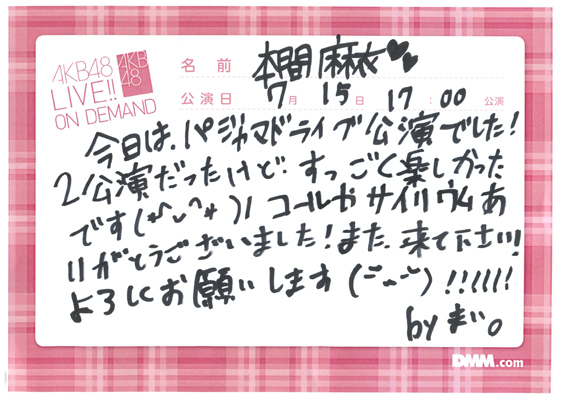 AKB48
LIVE!!
ON DEMAND
AKB
48
名前 本間麻衣
公演日 7月15日 17:00公演
今日は、パジャマドライブ公演でした!
2公演だったけど、すっごく楽しかった
です(*^^*)ノ コールやサイリウムあ
りがとうございました!また、来て下さい!
よろしくお願いします(ˉ⌣ˉ)!!!!!!
by まい。
DMM.com